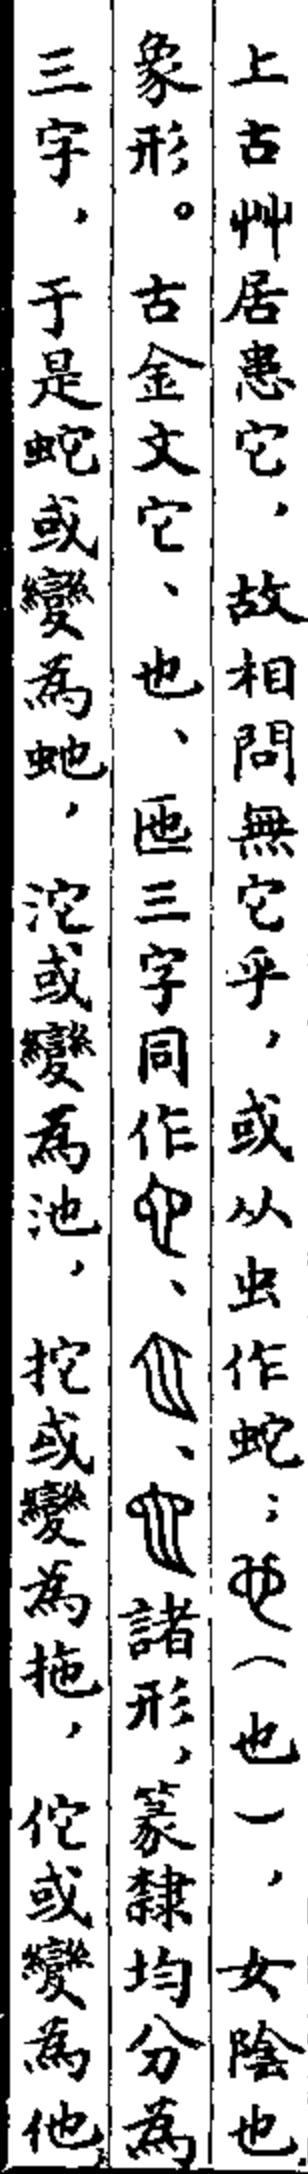 上古艸居患它，故相問無它乎，或从虫作蛇；（也），女陰也
象形。古金文它、也、匜三字同作、、諸形，篆隸均分為
三字，于是蛇或變為虵，沱或變為池，拕或變為拖，佗或變為他